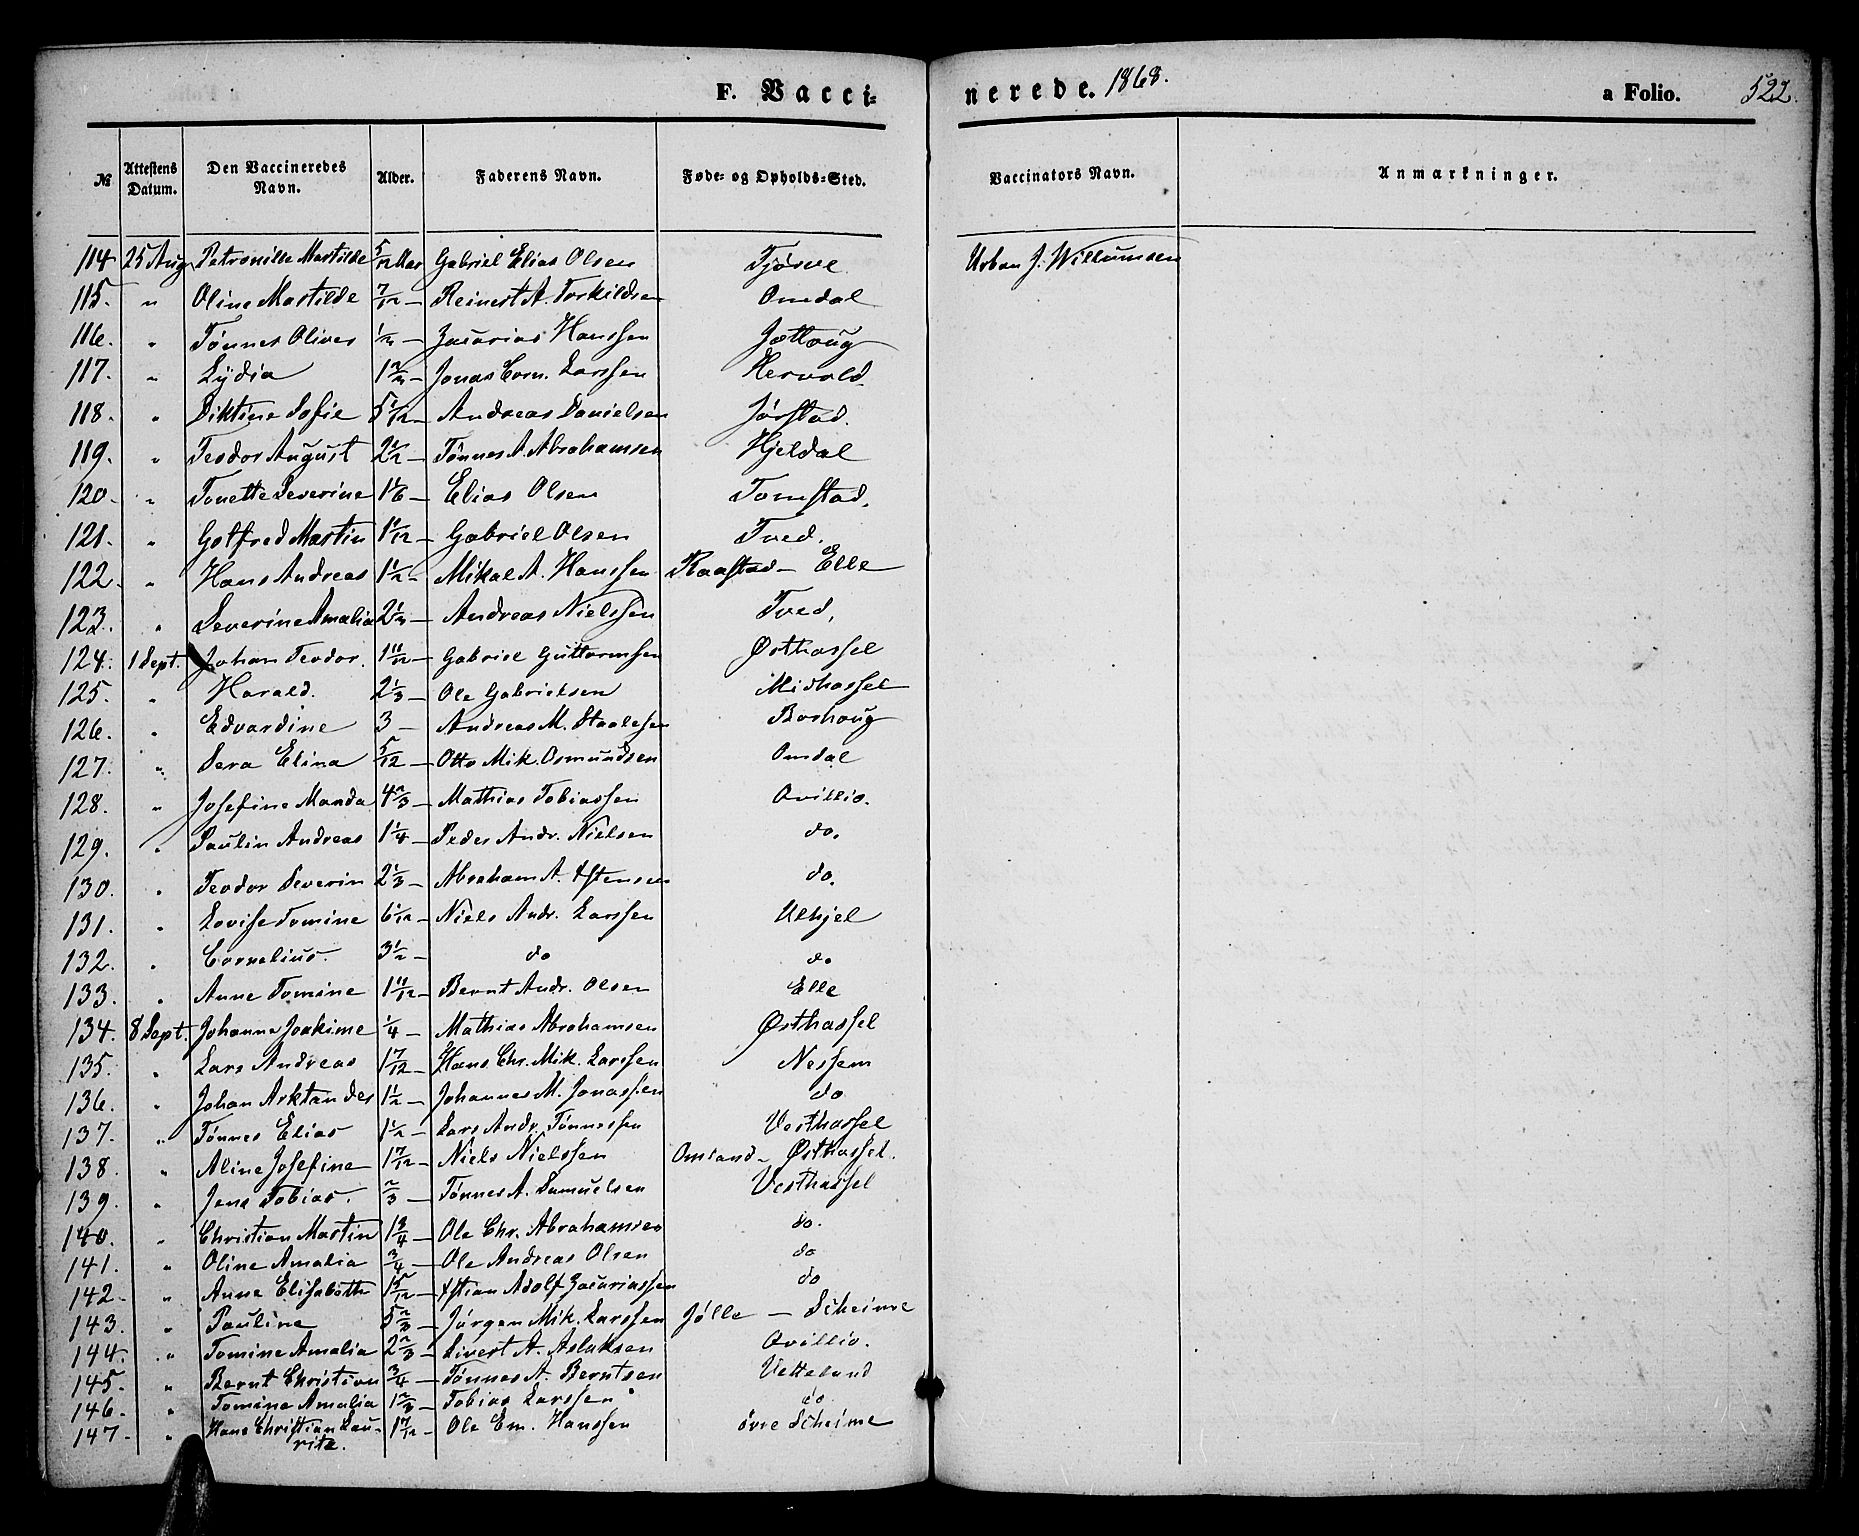 F. Vacci- nerede. 1868. a Folio. 522.
№ Attestens Datum. Den Vaccineredes Navn. Alder. Faderens Navn. Føde- og Opholds-Sted. Vaccinators Navn. Anmærkninger.
114 25 Aug Petronille Mathilde 5/12 Aar Gabriel Elias Olsen Tjørve Urban J. Willumsen
115. " Oline Mathilde 7/12 — Reinert A. Torkildsen Omdal
116. " Tønnes Oliver 1/2 — Zacarias Hanssen Jættoug
117. " Lydia 1 2/3 — Jonas Corn. Larssen Hervold
118. " Diktine Sofie 5 1/12 — Andreas Danielsen Jørstad.
119. " Teodor August 2 1/2 — Tønnes A. Abrahamsen Hjeldal
120. " Tonette Severine 1 1/6 — Elias Olsen Tomstad.
121. " Gotfred Martin 1 1/12 — Gabriel Olsen Tved.
122. " Hans Andreas 1 1/2 — Mikal A. Hanssen Raastad — Elle
123. " Severine Amalia 2 1/3 — Andreas Nielssen Tved,
124. 1 Sept. Johan Teodor. 1 11/12 — Gabriel Guttormsen Østhassel
125. " Harald. 2 1/3 — Ole Gabrielsen Midhassel
126. " Edvardine 3 — Andreas M. Staalesen Borhoug
127. " Sera Elina 5/12 — Otto Mik. Osmundsen Omdal
128. " Josefine Manda 4 2/3 — Mathias Tobiassen Ovillio.
129. " Paulin Andreas 1 1/4 — Peder Andr. Nielsen do.
130. " Teodor Severin 2 1/3 — Abraham A. do.
131. " Lovise Tomine 6 1/12 — Niels Andr. Larssen Ulhjel
132. " Cornelius. 3 1/2 — do do
133. " Anne Tomine 1 11/12 — Bernt Andr. Olsen Elle
134. 8 Sept. Johanne Joakime 1/4 — Mathias Abrahamsen Østhassel
135. " Lars Andreas 1 7/12 — Hans Chr. Mik. Larssen Nessem
136. " Johan Arktander 1 1/2 — Johannes M. Jonassen do
137. " Tønnes Elias 1 1/2 — Lars Andr. Tønnessen Vesthassel
138. " Aline Josefine 1 7/12 — Niels Nielssen Omland — Østhassel.
139. " Jens Tobias. 2/3 — Tønnes A. Samuelsen Vesthassel
140. " Christian Martin 1 3/4 — Ole Chr. Abrahamsen do.
141. " Oline Amalia 3/4 — Ole Andreas Olsen do
142. " Anne Elisabeth 1 5/12 — Adolf Zacariassen do
143. " Pauline 5 2/3 — Jørgen Mik. Larssen Jølle — Scheime
144. " Tomine Amalia 2 2/3 — Sivert A. Aslaksen Ovillio.
145. " Bernt Christian 3/4 — Tønnes A. Berntsen Vetteland
146. " Tomine Amalia 1 2/3 — Tobias Larssen do
147. " Hans Christian Lau- 1 7/12 — Ole Em. Hanssen øvre Scheime
ritz.